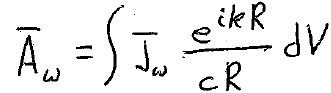 Ā_ω = ∫ J̄_ω e^{ikR}/cR dV